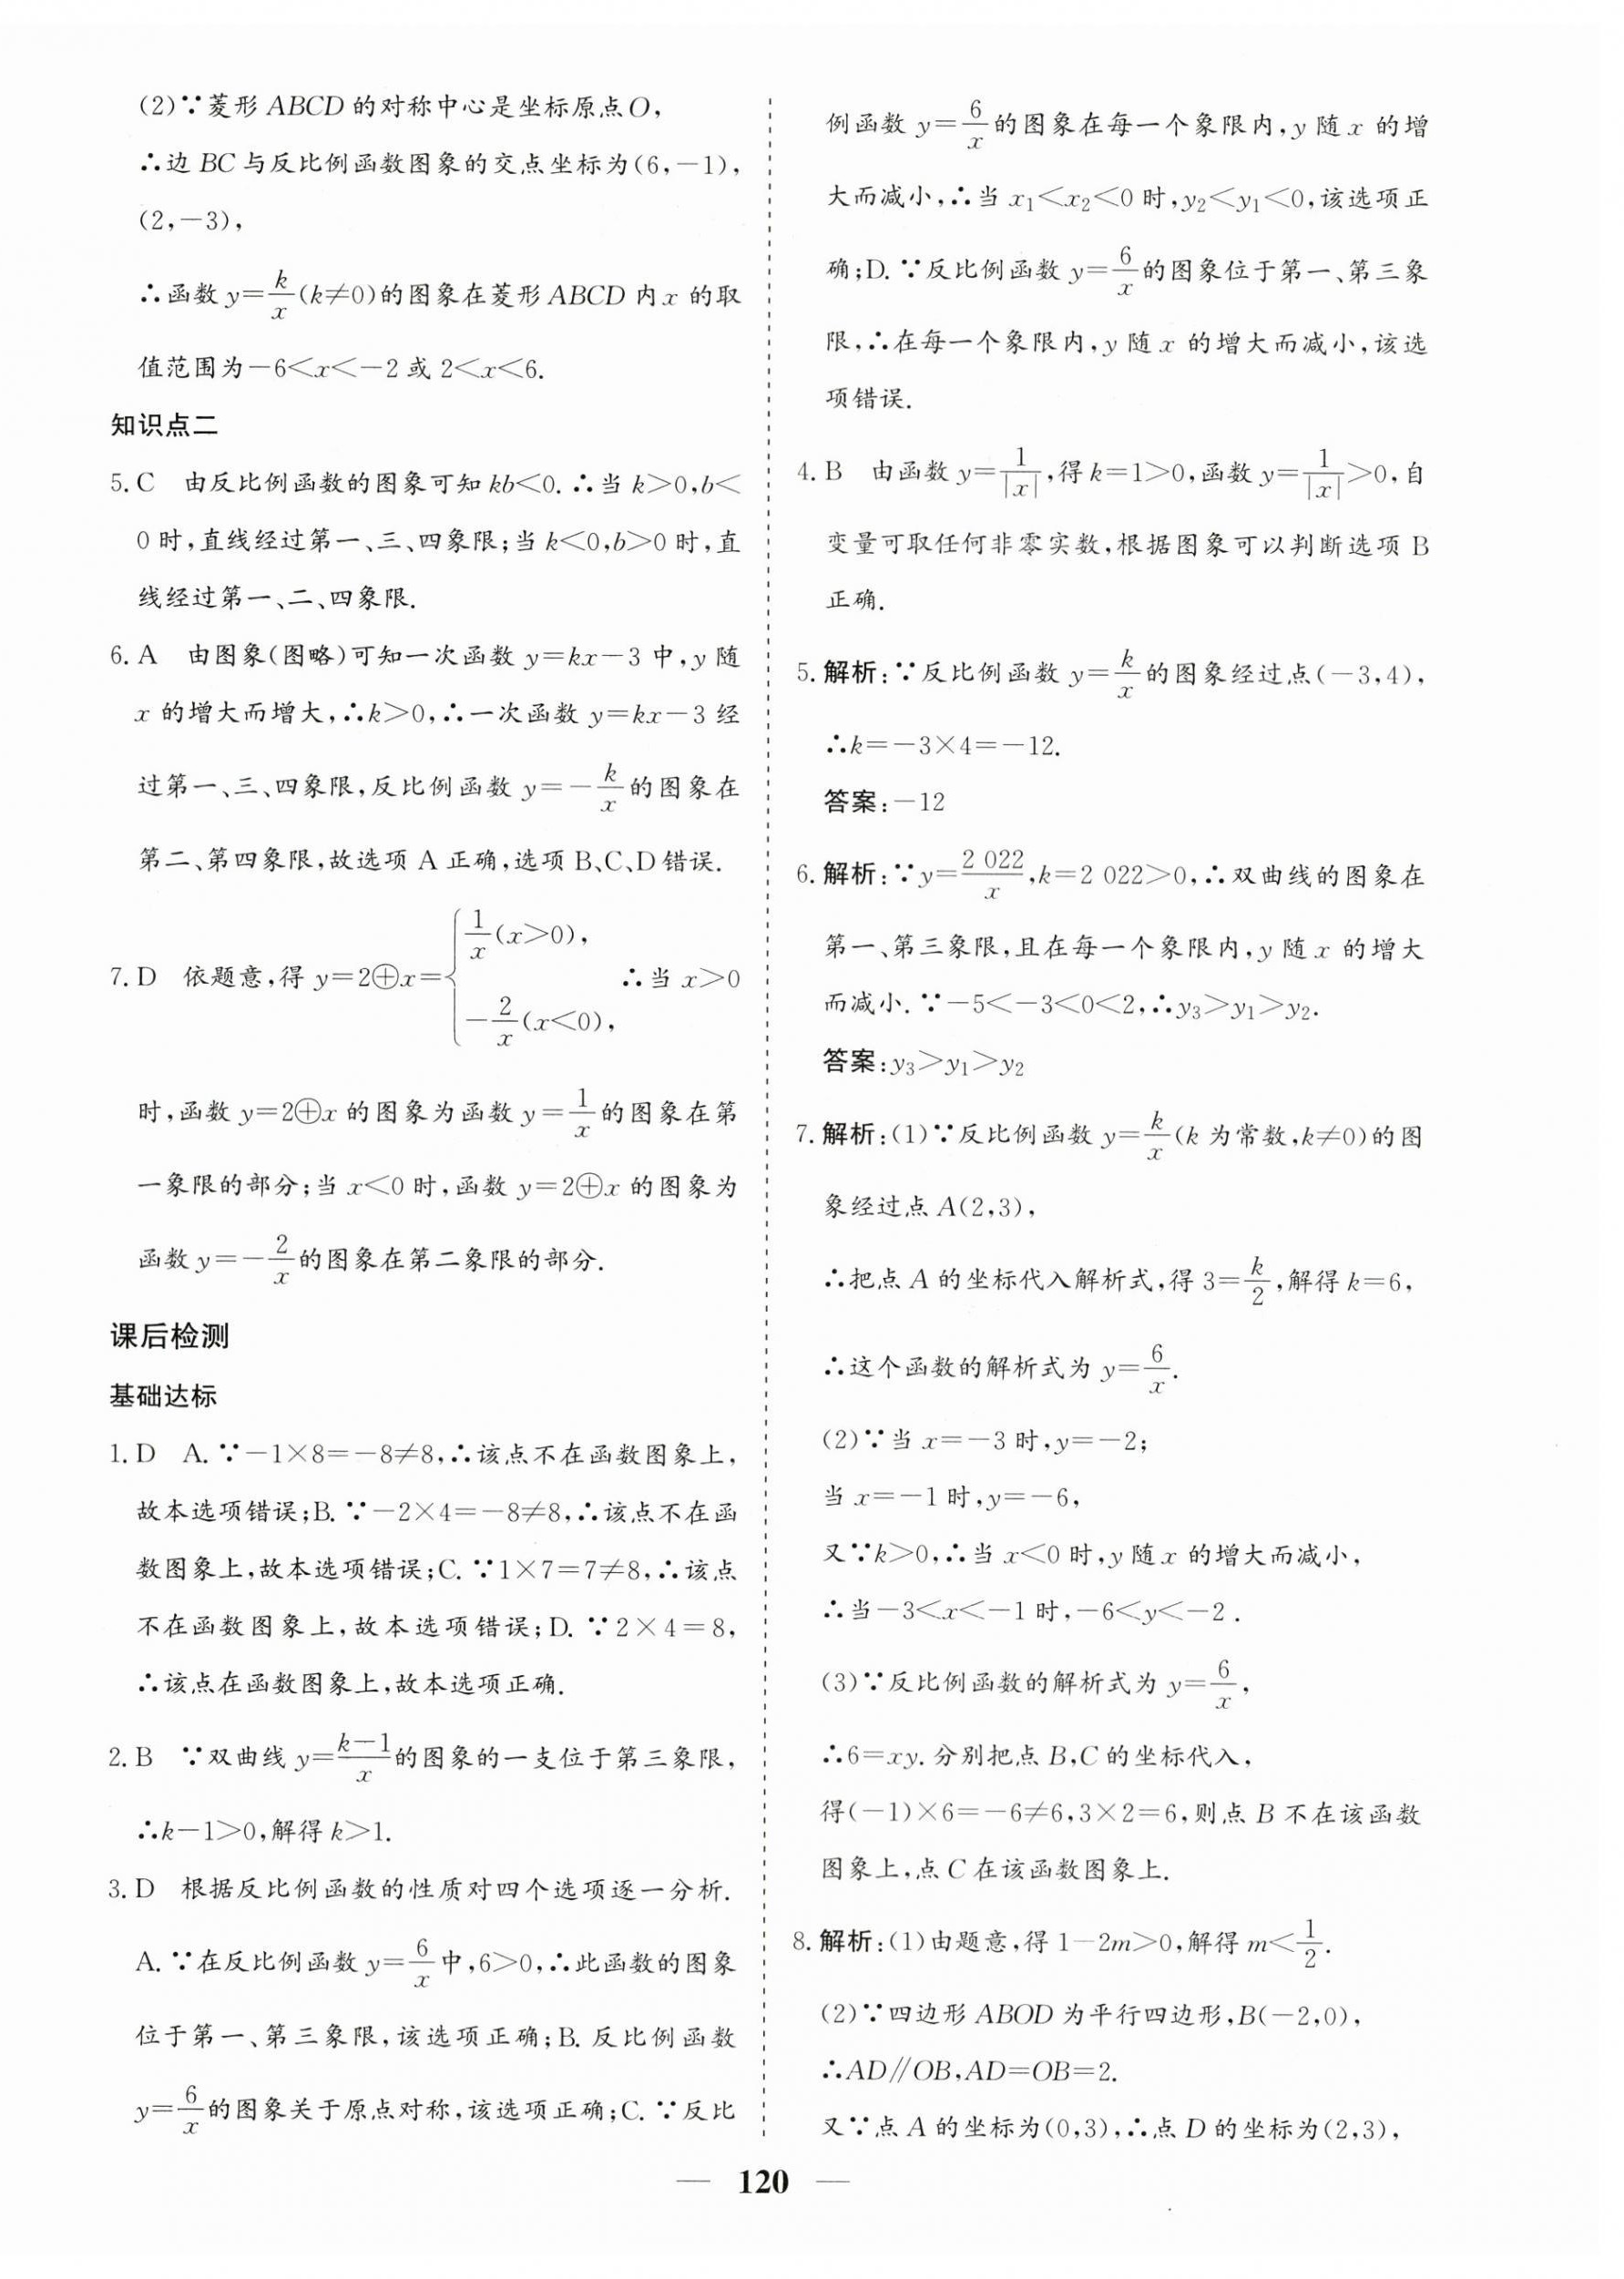 (2)∵菱形 ABCD 的对称中心是坐标原点O,
∴边 BC 与反比例函数图象的交点坐标为(6,−1),
(2,−3),
∴函数 y=k/x(k≠0)的图象在菱形 ABCD 内 x 的取
值范围为−6<x<−2 或 2<x<6.
知识点二
5. C 由反比例函数的图象可知 kb<0. ∴当 k>0,b<
0 时,直线经过第一、三、四象限;当 k<0,b>0 时,直
线经过第一、二、四象限.
6. A 由图象(图略)可知一次函数 y=kx−3 中,y 随
x 的增大而增大,∴k>0,∴一次函数 y=kx−3 经
过第一、三、四象限,反比例函数 y=−k/x的图象在
第二、第四象限,故选项 A 正确,选项 B、C、D 错误.
7. D 依题意,得 y=2⊕x={1/x(x>0), −2/x(x<0), ∴当 x>0
时,函数 y=2⊕x 的图象为函数 y=1/x的图象在第
一象限的部分;当 x<0 时,函数 y=2⊕x 的图象为
函数 y=−2/x的图象在第二象限的部分.
课后检测
基础达标
1. D A. ∵−1×8=−8≠8,∴该点不在函数图象上,
故本选项错误;B. ∵−2×4=−8≠8,∴该点不在函
数图象上,故本选项错误;C. ∵1×7=7≠8,∴该点
不在函数图象上,故本选项错误;D. ∵2×4=8,
∴该点在函数图象上,故本选项正确.
2. B ∵双曲线 y=(k−1)/x的图象的一支位于第三象限,
∴k−1>0,解得 k>1.
3. D 根据反比例函数的性质对四个选项逐一分析.
A. ∵在反比例函数 y=6/x中,6>0,∴此函数的图象
位于第一、第三象限,该选项正确;B. 反比例函数
y=6/x的图象关于原点对称,该选项正确;C. ∵反比
例函数 y=6/x的图象在每一个象限内,y 随 x 的增
大而减小,∴当 x₁<x₂<0 时,y₂<y₁<0,该选项正
确;D. ∵反比例函数 y=6/x的图象位于第一、第三象
限,∴在每一个象限内,y 随 x 的增大而减小,该选
项错误.
4. B 由函数 y=1/|x|,得 k=1>0,函数 y=1/|x|>0,自
变量可取任何非零实数,根据图象可以判断选项 B
正确.
5. 解析:∵反比例函数 y=k/x的图象经过点(−3,4),
∴k=−3×4=−12.
答案:−12
6. 解析:∵y=2 022/x,k=2 022>0,∴双曲线的图象在
第一、第三象限,且在每一个象限内,y 随 x 的增大
而减小. ∵−5<−3<0<2,∴y₃>y₁>y₂.
答案:y₃>y₁>y₂
7. 解析:(1)∵反比例函数 y=k/x(k 为常数,k≠0)的图
象经过点 A(2,3),
∴把点 A 的坐标代入解析式,得 3=k/2,解得 k=6,
∴这个函数的解析式为 y=6/x.
(2)∵当 x=−3 时,y=−2;
当 x=−1 时,y=−6,
又∵k>0,∴当 x<0 时,y 随 x 的增大而减小,
∴当−3<x<−1 时,−6<y<−2.
(3)∵反比例函数的解析式为 y=6/x,
∴6=xy. 分别把点 B,C 的坐标代入,
得(−1)×6=−6≠6,3×2=6,则点 B 不在该函数
图象上,点 C 在该函数图象上.
8. 解析:(1)由题意,得 1−2m>0,解得 m<1/2.
(2)∵四边形 ABOD 为平行四边形,B(−2,0),
∴AD∥OB,AD=OB=2.
又∵点 A 的坐标为(0,3),∴点 D 的坐标为(2,3),
— 120 —